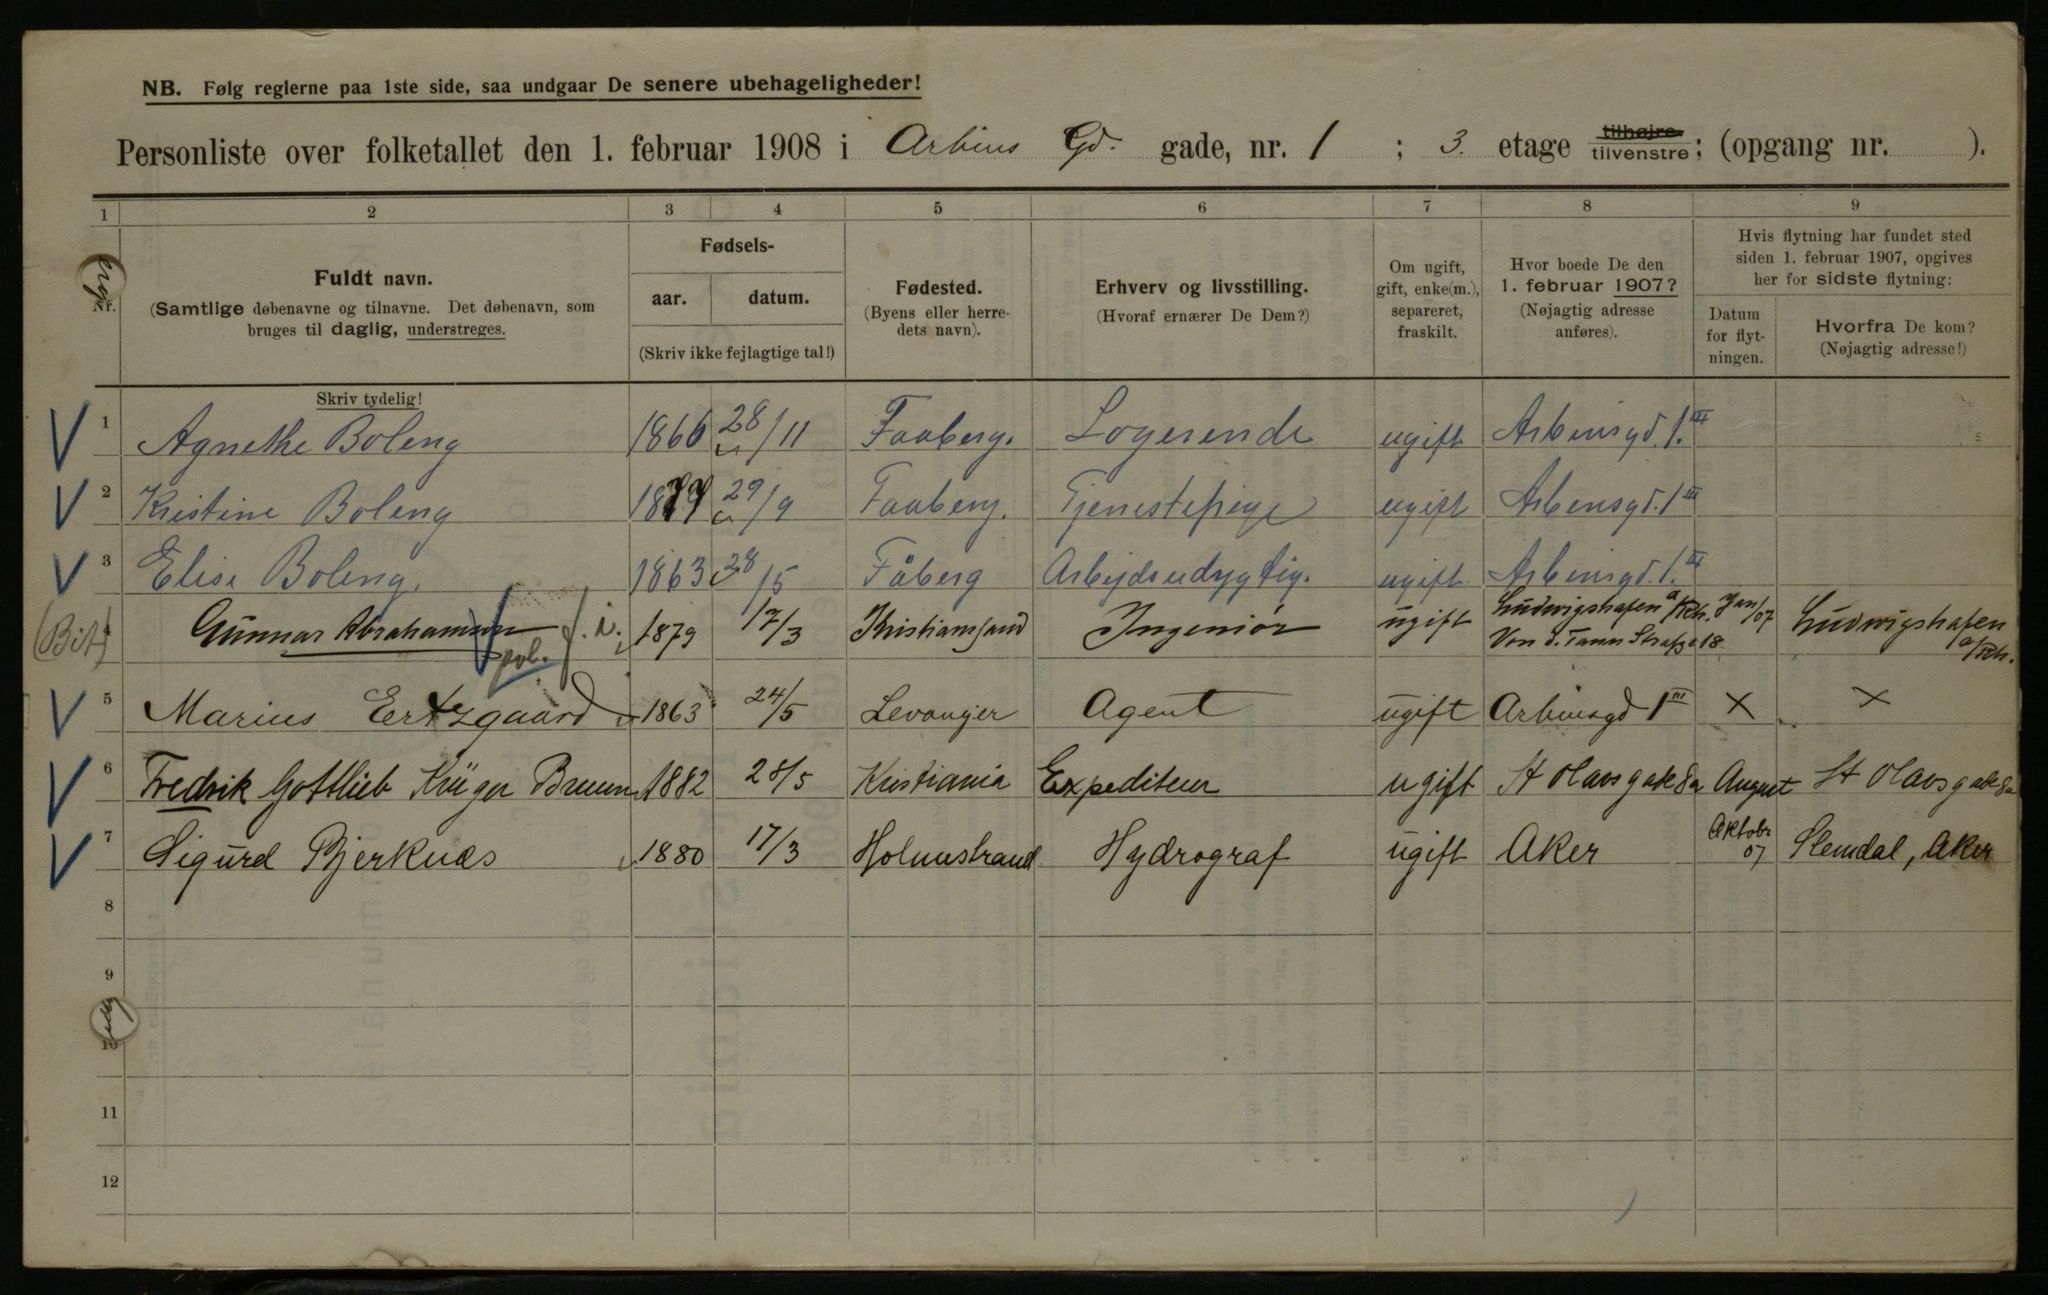 NB. Følg reglerne paa 1ste side, saa undgaar De senere ubehageligheder!
Personliste over folketallet den 1. februar 1908 i Arbins Gd. gade, nr. 1 ; 3. etage tilhøjre tilvenstre ; (opgang nr. ).
1 2 3 4 5 6 7 8 9
Nr.
Fuldt navn.
(Samtlige døbenavne og tilnavne. Det døbenavn, som
bruges til daglig, understreges.
Skriv tydelig!
Fødsels-
aar. datum.
(Skriv ikke fejlagtige tal!)
Fødested.
(Byens eller herre-
dets navn).
Erhverv og livsstilling.
(Hvoraf ernærer De Dem?)
Om ugift,
gift, enke(m.),
separeret,
fraskilt.
Hvor boede De den
1. februar 1907?
(Nøjagtig adresse
anføres).
Hvis flytning har fundet sted
siden 1. februar 1907, opgives
her for sidste flytning:
Datum
for flyt-
ningen.
Hvorfra De kom?
(Nøjagtig adresse!)
1 Agnethe Boleng 1866 28/11 Faaberg. Logerende ugift Arbinsgd. 1. III
2 Kristine Boleng 29/9 Faaberg. Tjenestepige ugift Arbinsgd. 1 III
3 Elise Boleng. 1863 28/5 Fåberg Arbejdsudygtig. ugift Arbinsgd. 1. III
(Bit) Gunnar Abrahamsen f. i. 1879 17/3 Kristianssand Ingeniør ugift Ludwigshafen a/Rh. Jan/07 Ludwigshafen a/Rh.
pol. Von d. Tann Straße 18
5 Marius Ertzgaard 1863 24/5 Levanger Agent ugift Arbinsgd 1 III × ×
6 Fredrik Gottlieb Krüger Bruun 1882 28/5 Kristiania Expediteur ugift St Olavsgade 8a August St Olavsgade 8a
7 Sigurd Bjerknæs 1880 17/3 Holmestrand Hydrograf ugift Aker Aktobr 07 Slemdal, Aker
8
9
10
11
12